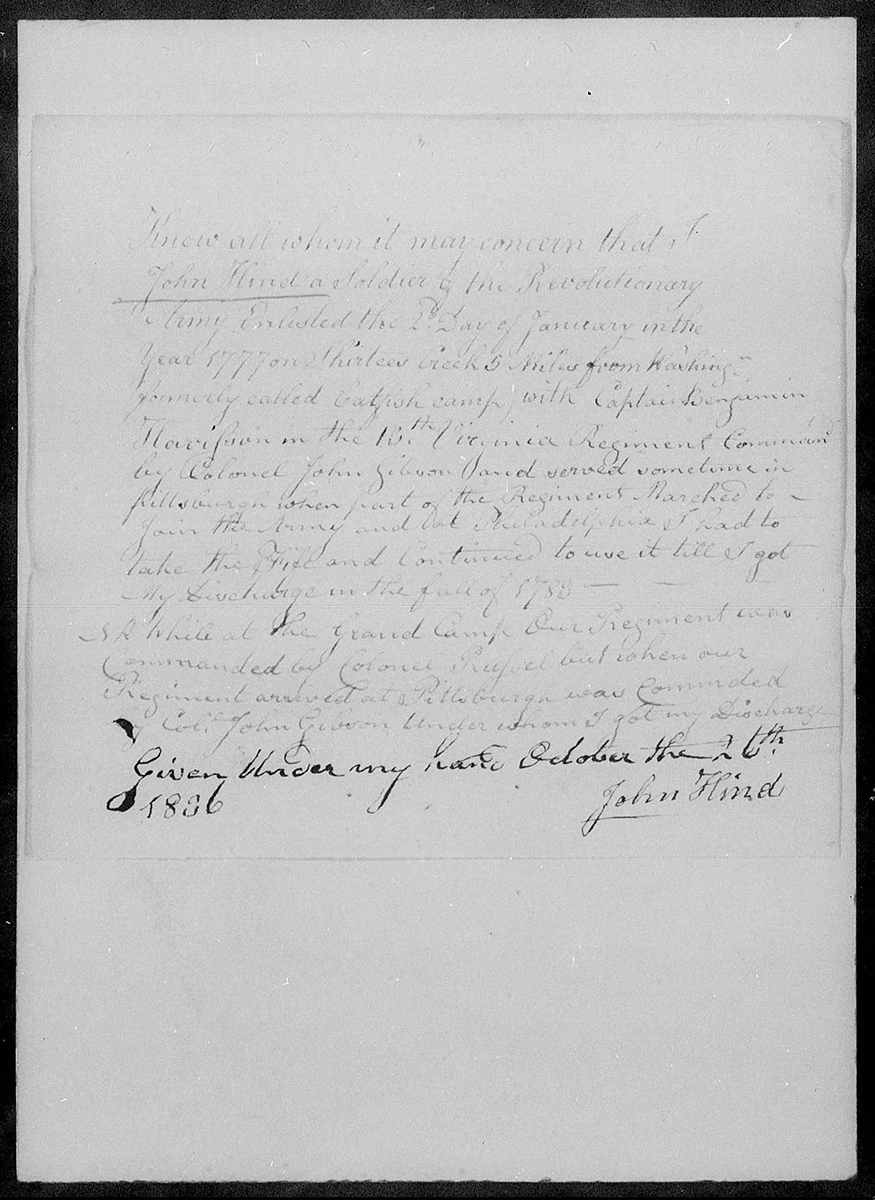 Know all whom it may concern that I
John Hind a Soldier of the Revolutionary
Army Enlisted the 2d Day of January in the
Year 1777 on Shirtees Creek 5 Miles from Washingn
(formerly called Catfish camp) with Captain Benjamin
Harrisson in the 13th Virginia Regiment Comman
by Colonel John Gibson and served sometime in
Pittsburgh when part of the Regiment Marched to
Join the Army and at Philadelphia I had to
take the Fife and Continued to use it till I got
My Discharge in the fall of 1783
NB While at the Grand Camp Our Regiment was
Commanded by Colonel Russel but when our
Regiment arrived at Pittsburgh was Commded
by Coll John Gibson Under whom I got my Discharge
Given Under my hand October the 26th
1836 John Hind